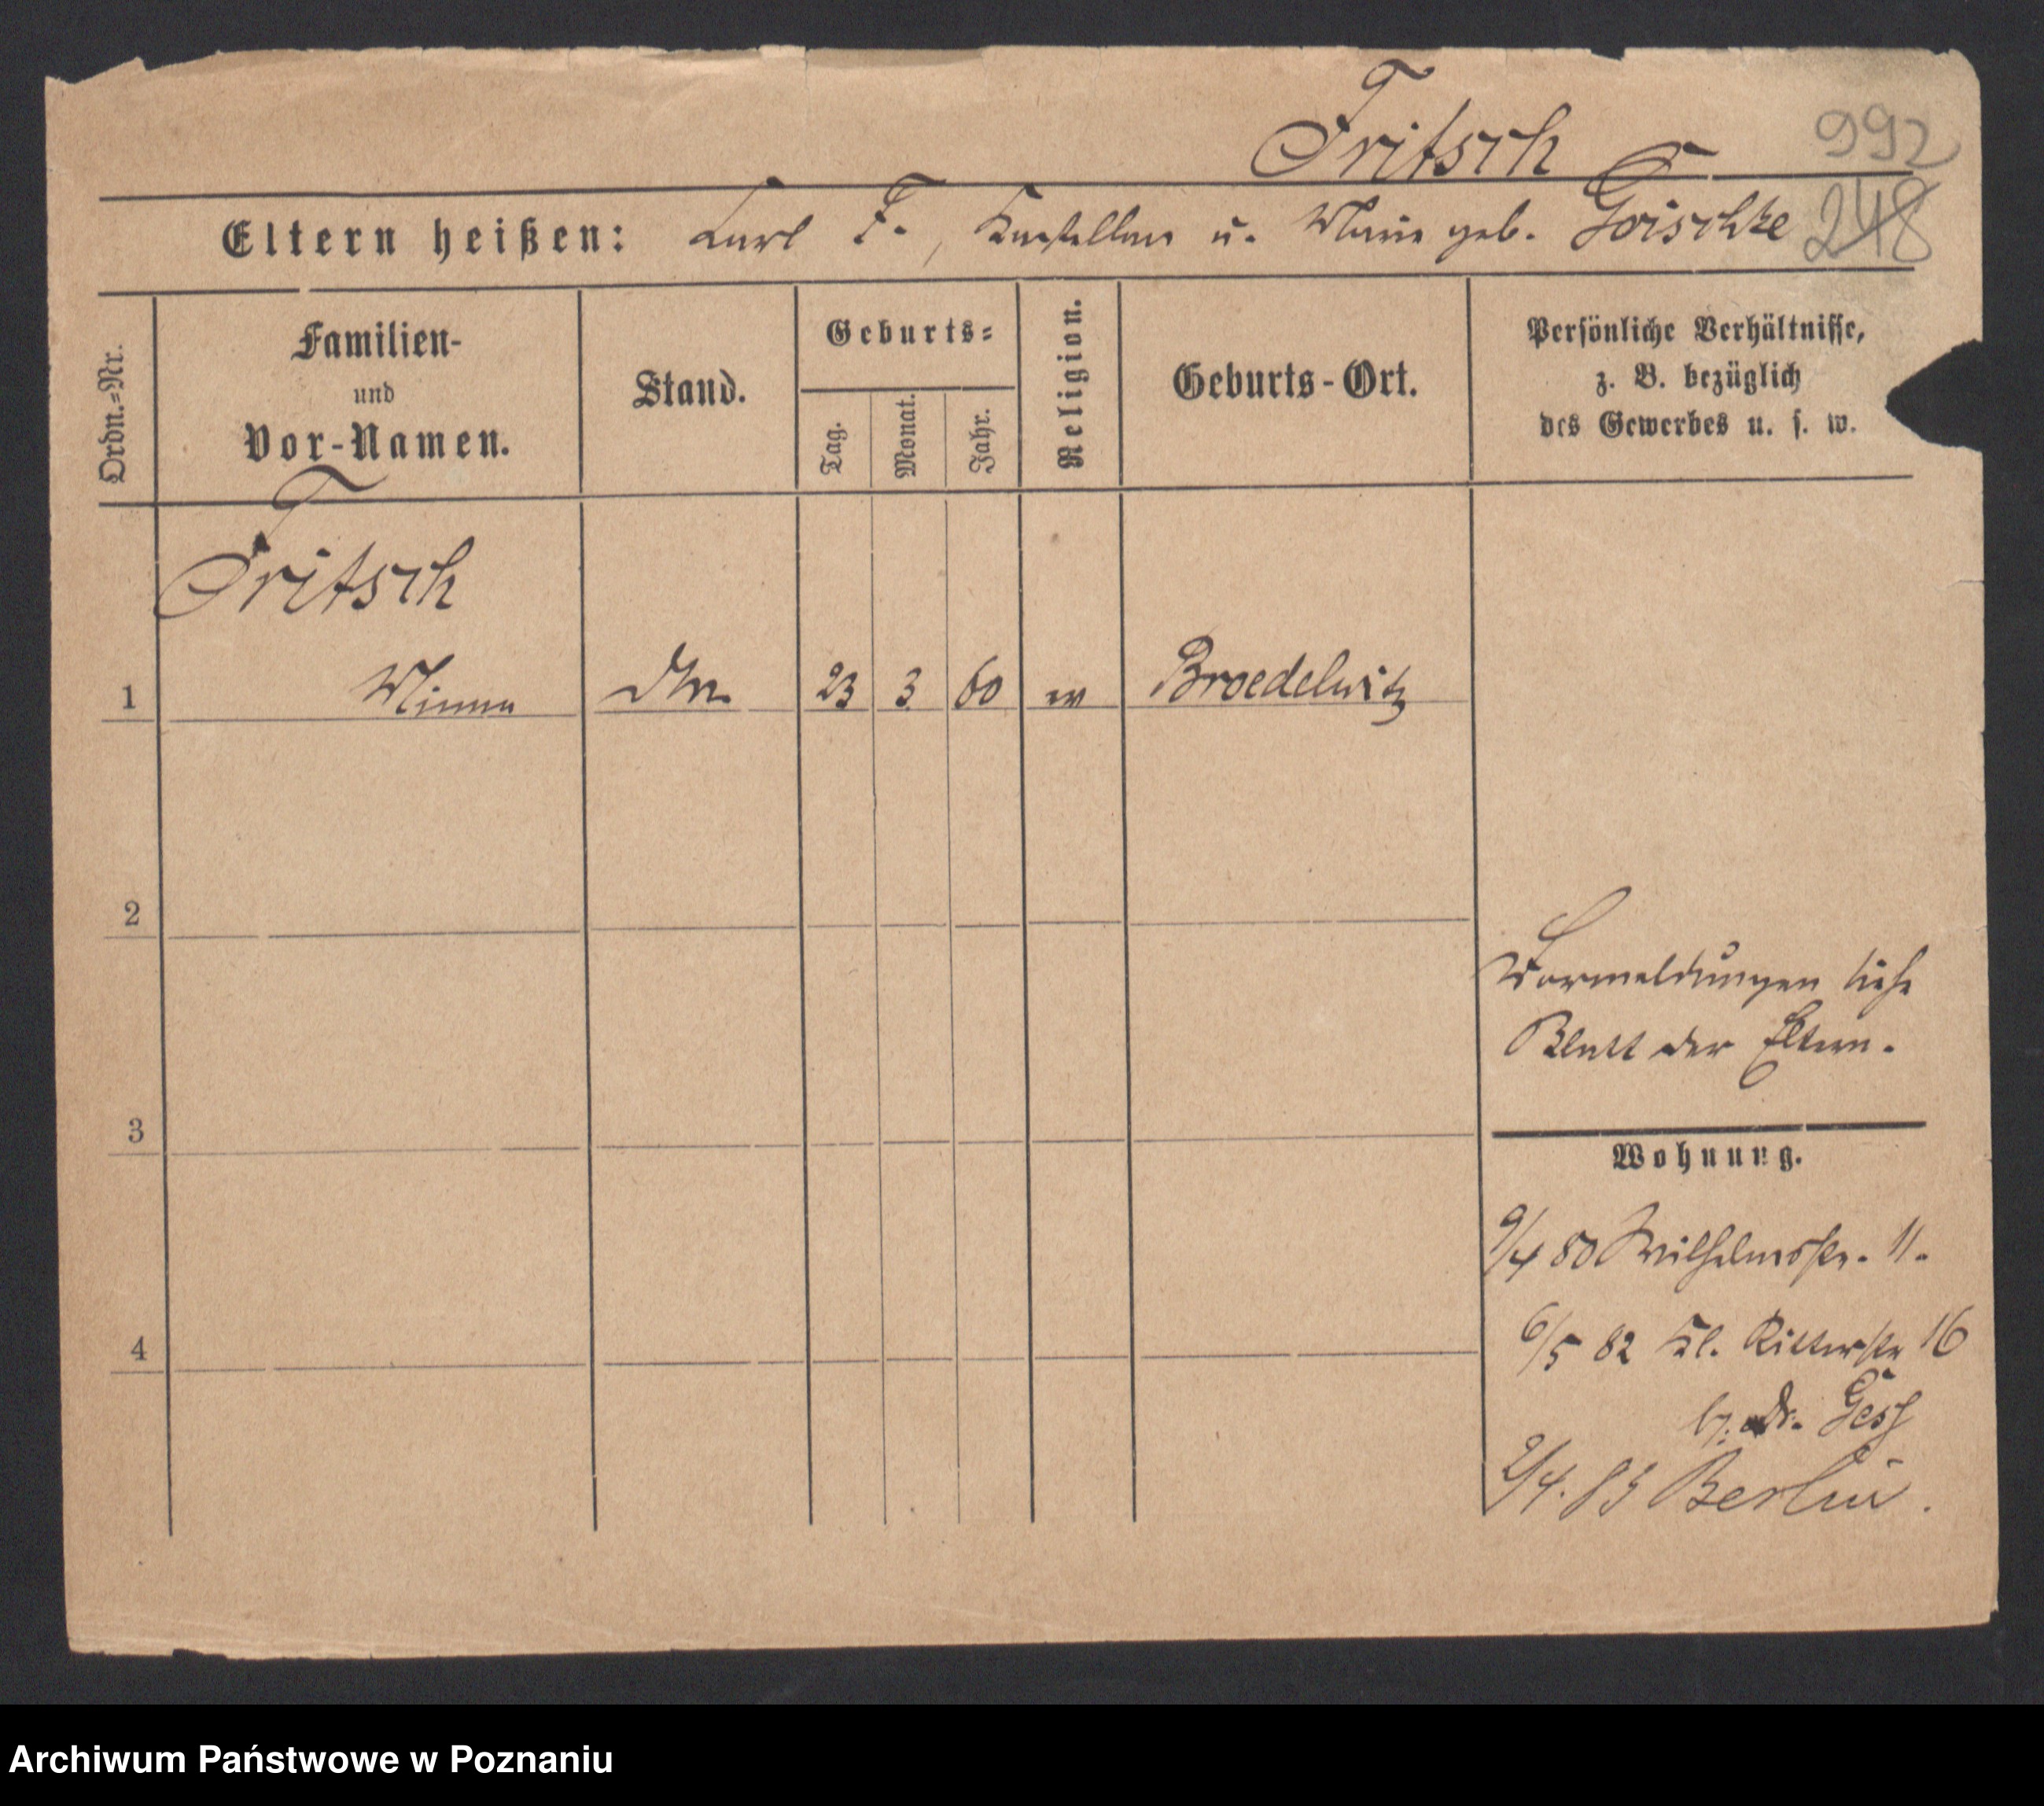 Fritsch
992
Eltern heißen: Carl F., Kastellan u. Marie geb. Goischke
248
Ordn.-Nr.
Familien-
und
Vor-Namen.
Stand.
Geburts-
Tag.
Monat.
Jahr.
Religion.
Geburts-Ort.
Persönliche Verhältnisse,
z. B. bezüglich
des Gewerbes u. s. w.
Fritsch
1 Minna 23 3 60 Broedelwitz
2
Vormeldungen siehe
Blatt der Eltern.
3
Wohnung.
9/4 80 Wilhelmsstr. 11.
4
6/5 82 Kl. Ritterstr 16
b. Dr.
2/4. 83 Berlin.
Archiwum Państwowe w Poznaniu